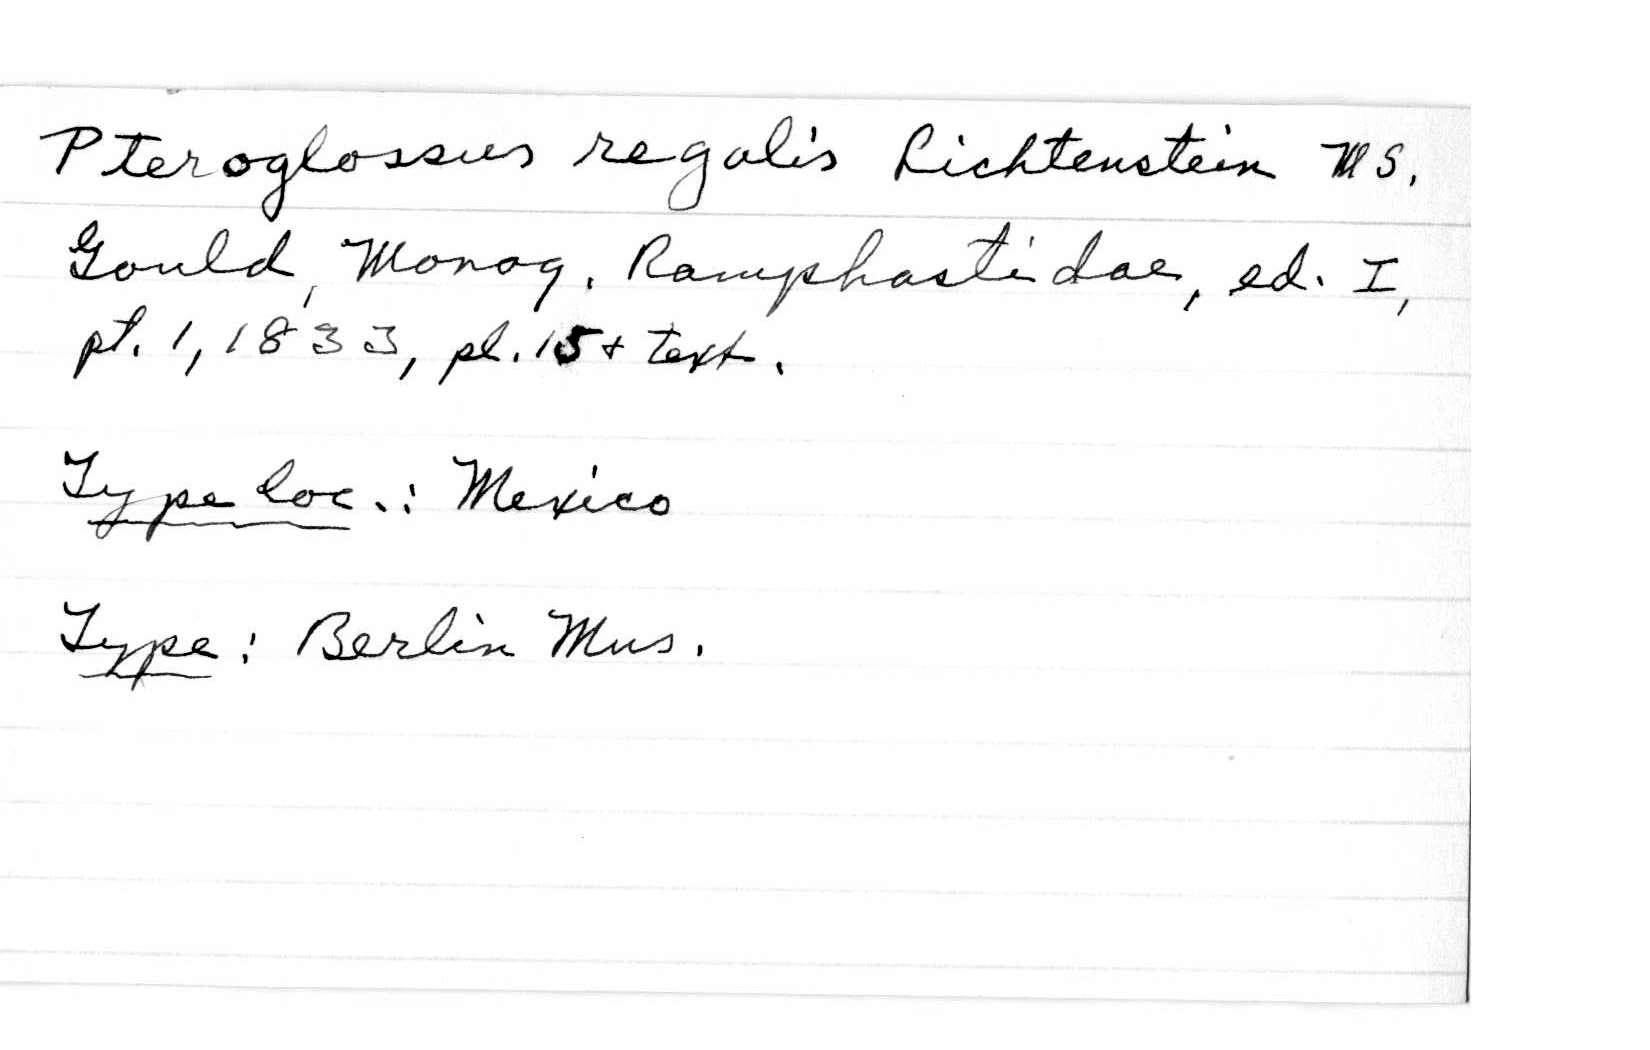 Pteroglossus regalis Lichtenstein MS.
Gould, Monog. Ramphastidae, ed. I,
pt. 1, 1833, pl. 15 + text.
Type loc.: Mexico
Type: Berlin Mus.